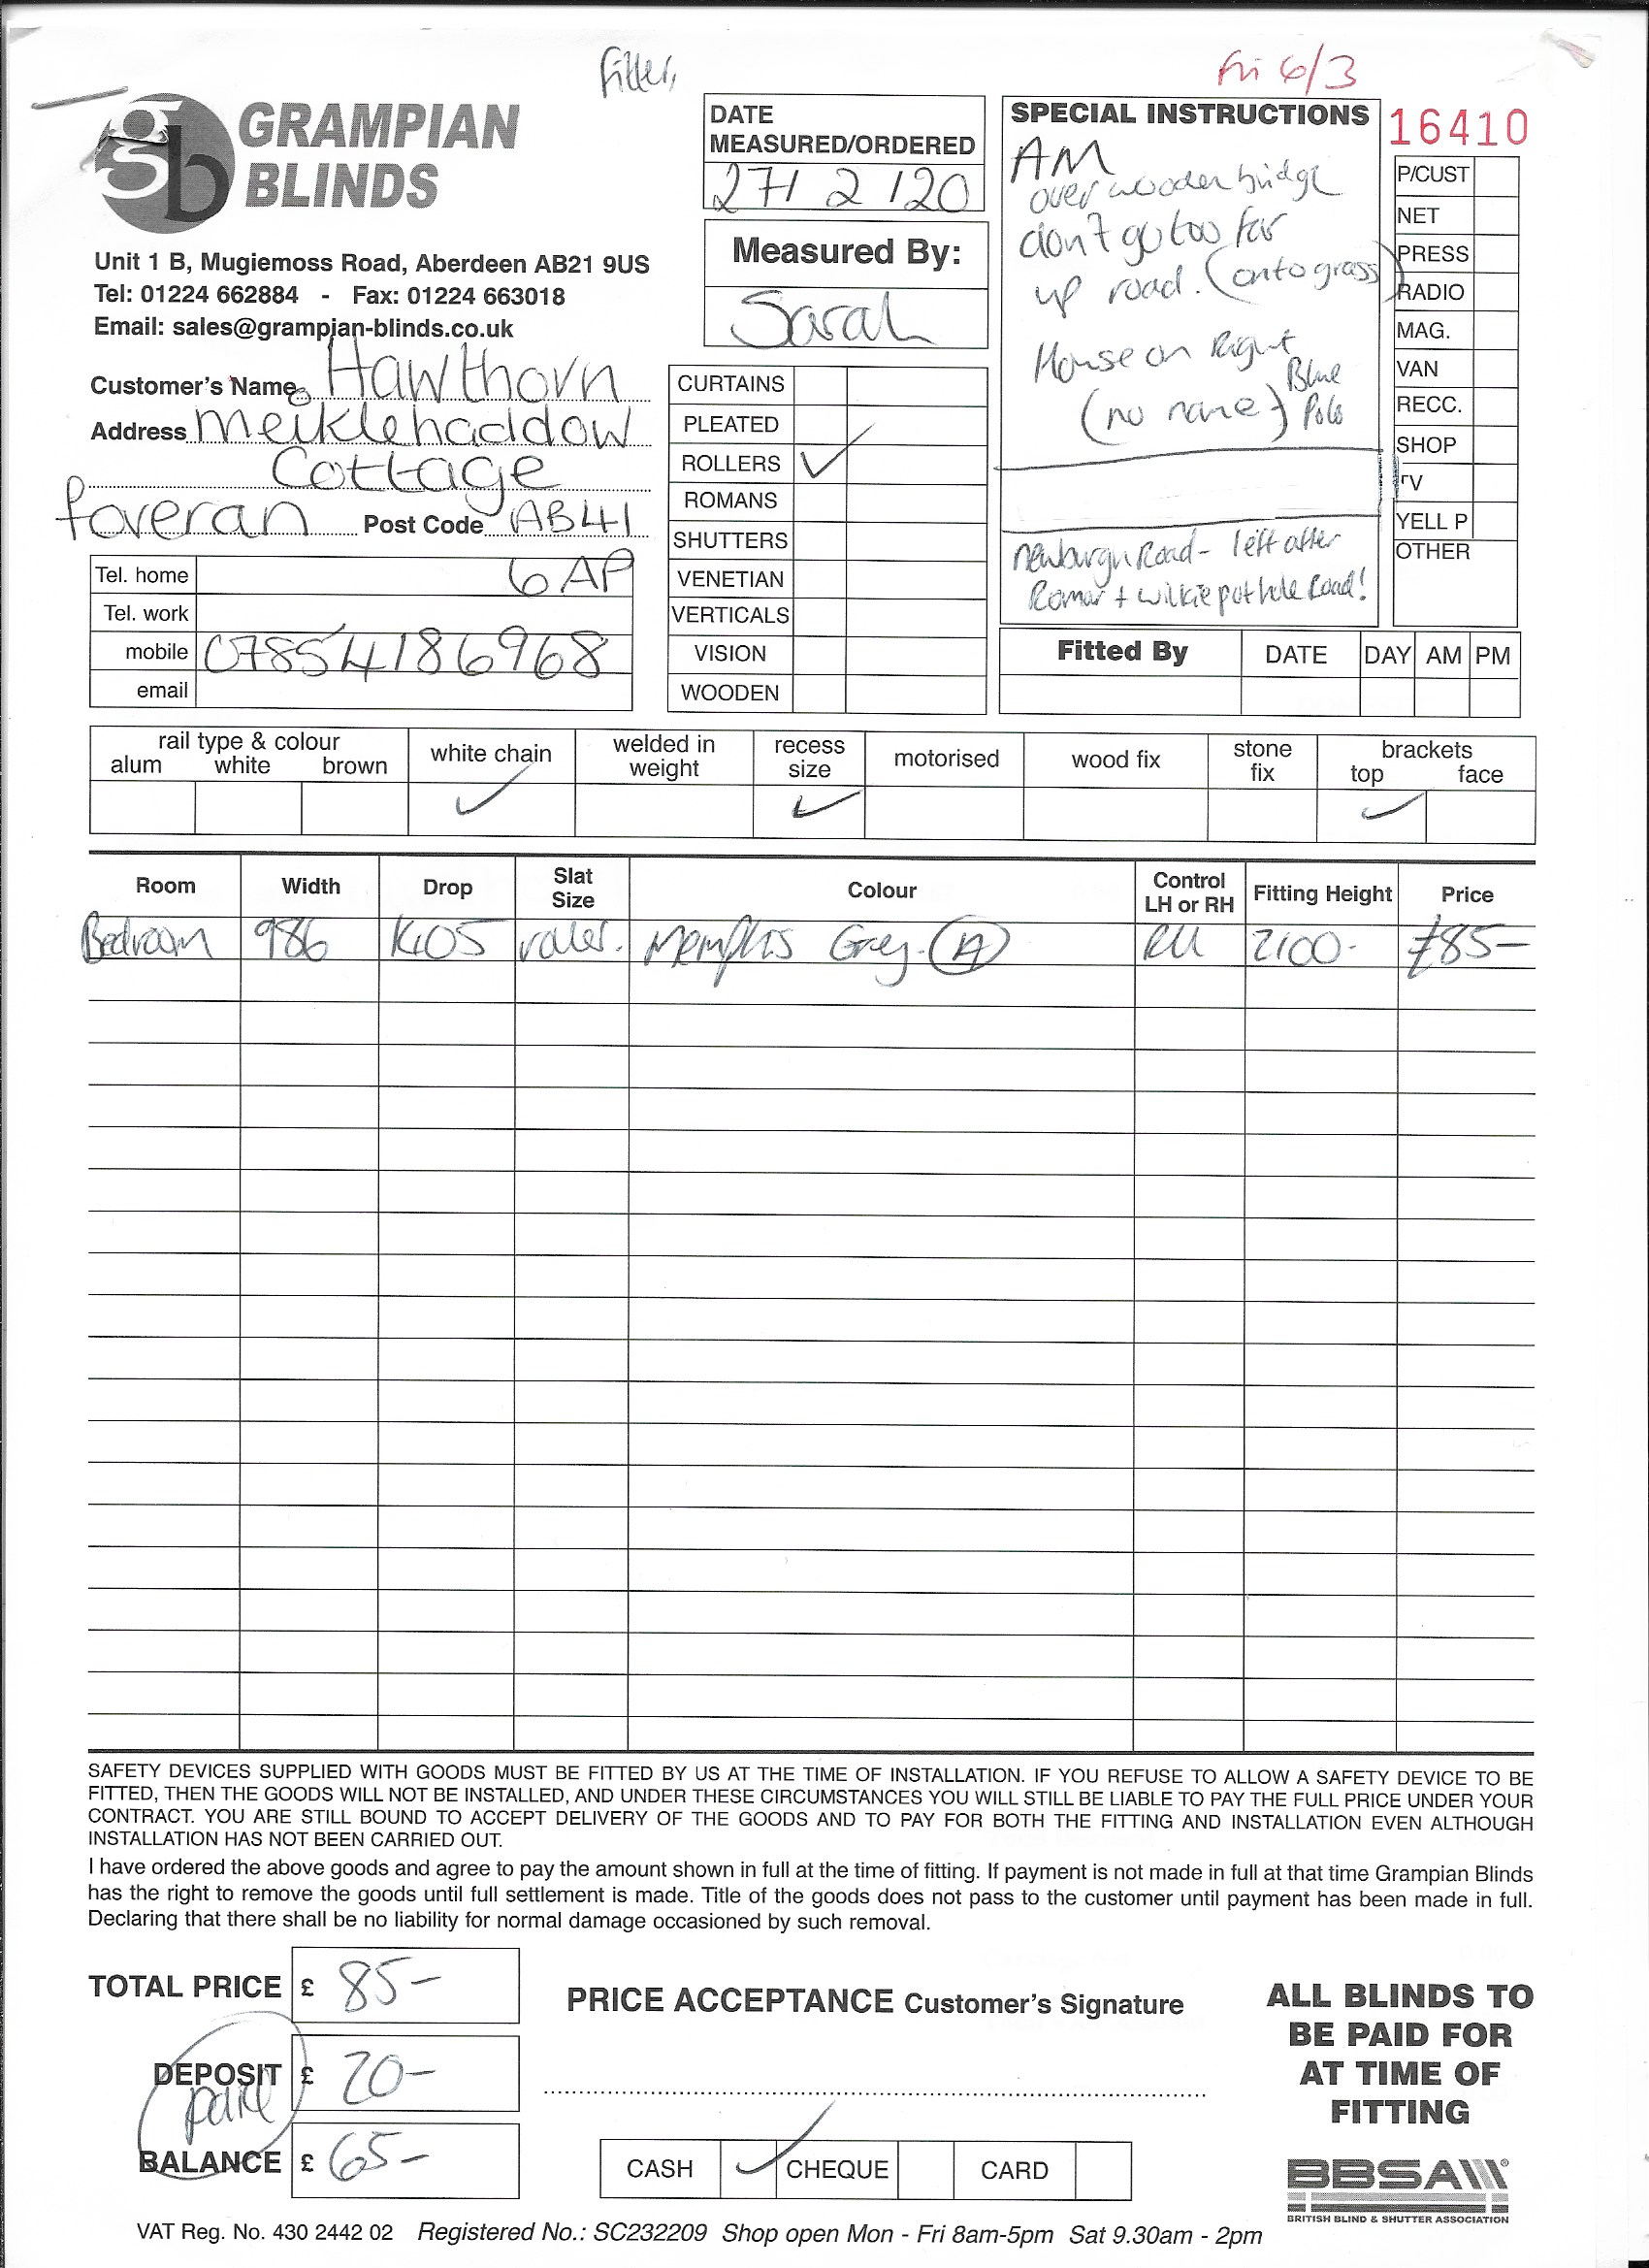 Fitter,
Fri 6/3
gb GRAMPIAN
BLINDS
Unit 1 B, Mugiemoss Road, Aberdeen AB21 9US
Tel: 01224 662884 - Fax: 01224 663018
Email: sales@grampian-blinds.co.uk
Customer's Name Hawthorn
Address Meiklehaddow
Cottage
Foveran Post Code AB41
6AP
Tel. home
Tel. work
mobile 07854186968
email
DATE
MEASURED/ORDERED
27/2/20
Measured By:
Sarah
CURTAINS
PLEATED
ROLLERS ✓
ROMANS
SHUTTERS
VENETIAN
VERTICALS
VISION
WOODEN
SPECIAL INSTRUCTIONS
AM
over wooden bridge
don't go too far
up road. (onto grass)
House on Right
(no name) Blue
Polo
Newburgh Road - left after
+ Wilkie pothole Road!
16410
P/CUST
NET
PRESS
RADIO
MAG.
VAN
RECC.
SHOP
TV
YELL P
OTHER
Fitted By DATE DAY AM PM
rail type & colour
alum white brown
white chain ✓
welded in
weight
recess
size ✓
motorised
wood fix
stone
fix
brackets
top ✓ face
Room Width Drop Slat Size Colour Control LH or RH Fitting Height Price
Bedroom 986 roller. Memphis Grey. (A) RH 2100- £85-
SAFETY DEVICES SUPPLIED WITH GOODS MUST BE FITTED BY US AT THE TIME OF INSTALLATION. IF YOU REFUSE TO ALLOW A SAFETY DEVICE TO BE
FITTED, THEN THE GOODS WILL NOT BE INSTALLED, AND UNDER THESE CIRCUMSTANCES YOU WILL STILL BE LIABLE TO PAY THE FULL PRICE UNDER YOUR
CONTRACT. YOU ARE STILL BOUND TO ACCEPT DELIVERY OF THE GOODS AND TO PAY FOR BOTH THE FITTING AND INSTALLATION EVEN ALTHOUGH
INSTALLATION HAS NOT BEEN CARRIED OUT.
I have ordered the above goods and agree to pay the amount shown in full at the time of fitting. If payment is not made in full at that time Grampian Blinds
has the right to remove the goods until full settlement is made. Title of the goods does not pass to the customer until payment has been made in full.
Declaring that there shall be no liability for normal damage occasioned by such removal.
TOTAL PRICE £ 85-
DEPOSIT £ 20-
paid
BALANCE £ 65-
PRICE ACCEPTANCE Customer's Signature
CASH ✓ CHEQUE CARD
ALL BLINDS TO
BE PAID FOR
AT TIME OF
FITTING
BBSA
BRITISH BLIND & SHUTTER ASSOCIATION
VAT Reg. No. 430 2442 02 Registered No.: SC232209 Shop open Mon - Fri 8am-5pm Sat 9.30am - 2pm